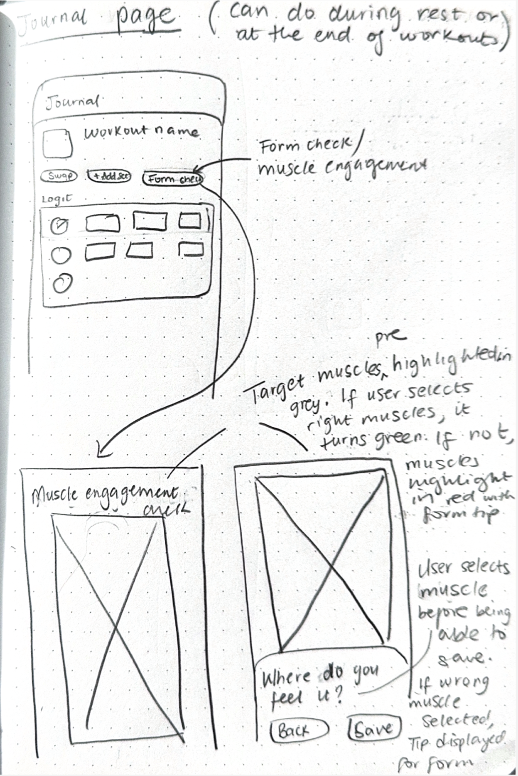 Journal page (can do during rest or
at the end of workouts)
Journal
Workout name
Form check/
muscle engagement
Swap
+ Add set
Form check
Logit
pre
Target muscles, highlighted in
grey. If user selects
right muscles, it
turns green. If not,
muscles
highlight
in red with
form tip
Muscle engagement
check
User selects
muscle
before being
able to
save.
If wrong
muscle
selected,
Tip displayed
for form
Where do you
feel it?
Back
Save